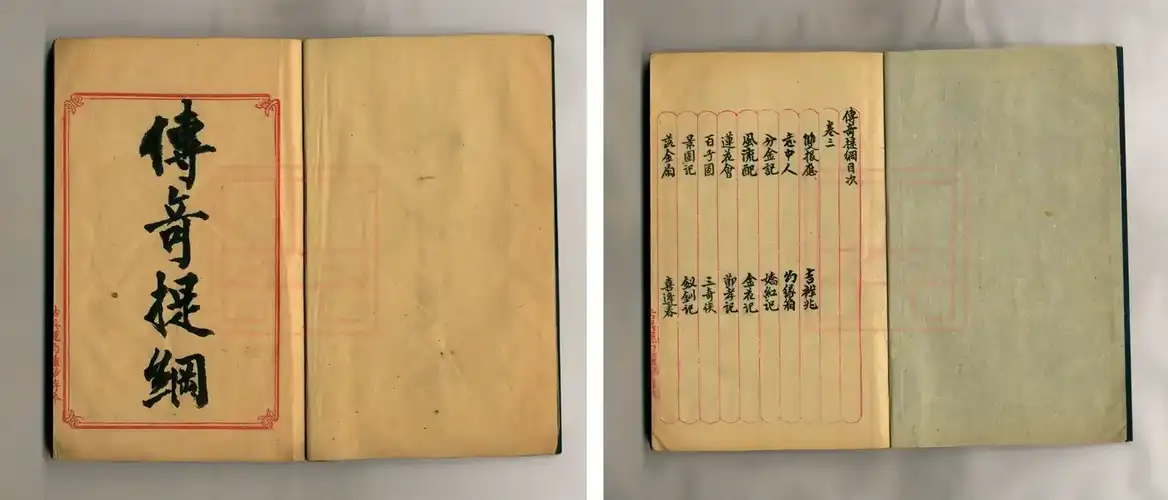 傳奇提綱
傳奇提綱目次
卷三
雙報應 吉祥兆
意中人 幻緣箱
分金記 嬌紅記
風流配 金花記
蓮花會 節孝記
百子圖 三奇俠
景園記 釵釧記
詨金扇 喜逢春